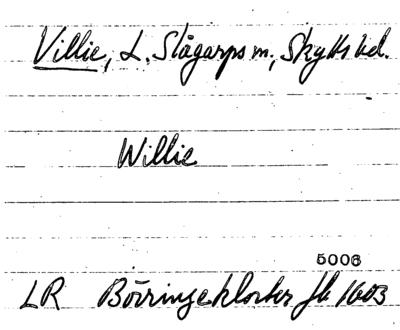 Villie, L. Slågarps sn., Skytts hd.
Willie
5006
LR Börringekloster jb 1603